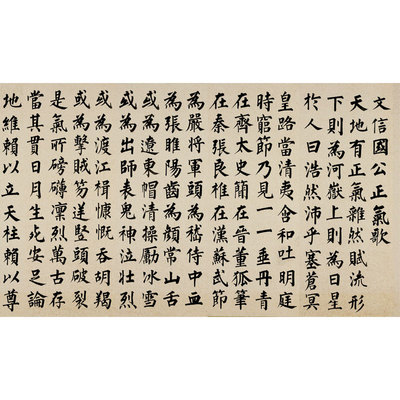 文信國公正氣歌
天地有正氣雜然賦流形
下則為河嶽上則為日星
於人曰浩然沛乎塞蒼冥
皇路當清夷含和吐明庭
時窮節乃見一一垂丹青
在齊太史簡在晉董狐筆
在秦張良椎在漢蘇武節
為嚴將軍頭為嵇侍中血
為張睢陽齒為顏常山舌
或為遼東帽清操勵冰雪
或為出師表鬼神泣壯烈
或為渡江楫慷慨吞胡羯
或為擊賊笏逆豎頭破裂
是氣所磅礴凜烈萬古存
當其貫日月生死安足論
地維賴以立天柱賴以尊